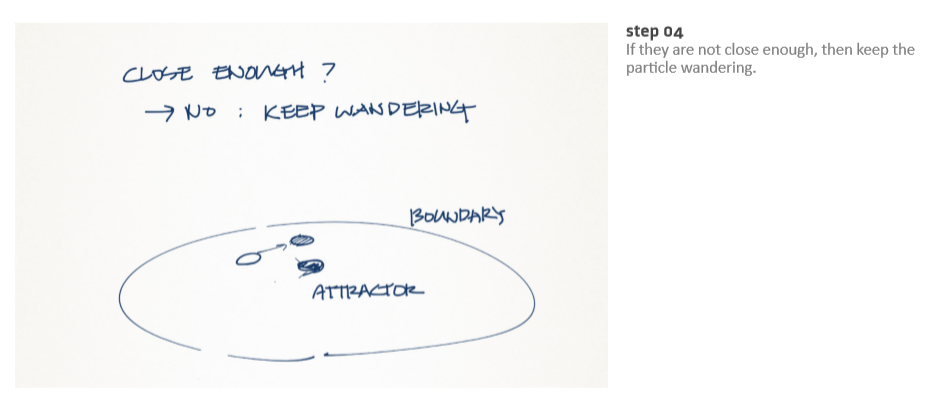 CLOSE ENOUGH ?
→ NO : KEEP WANDERING
BOUNDARY
ATTRACTOR
step 04
If they are not close enough, then keep the
particle wandering.